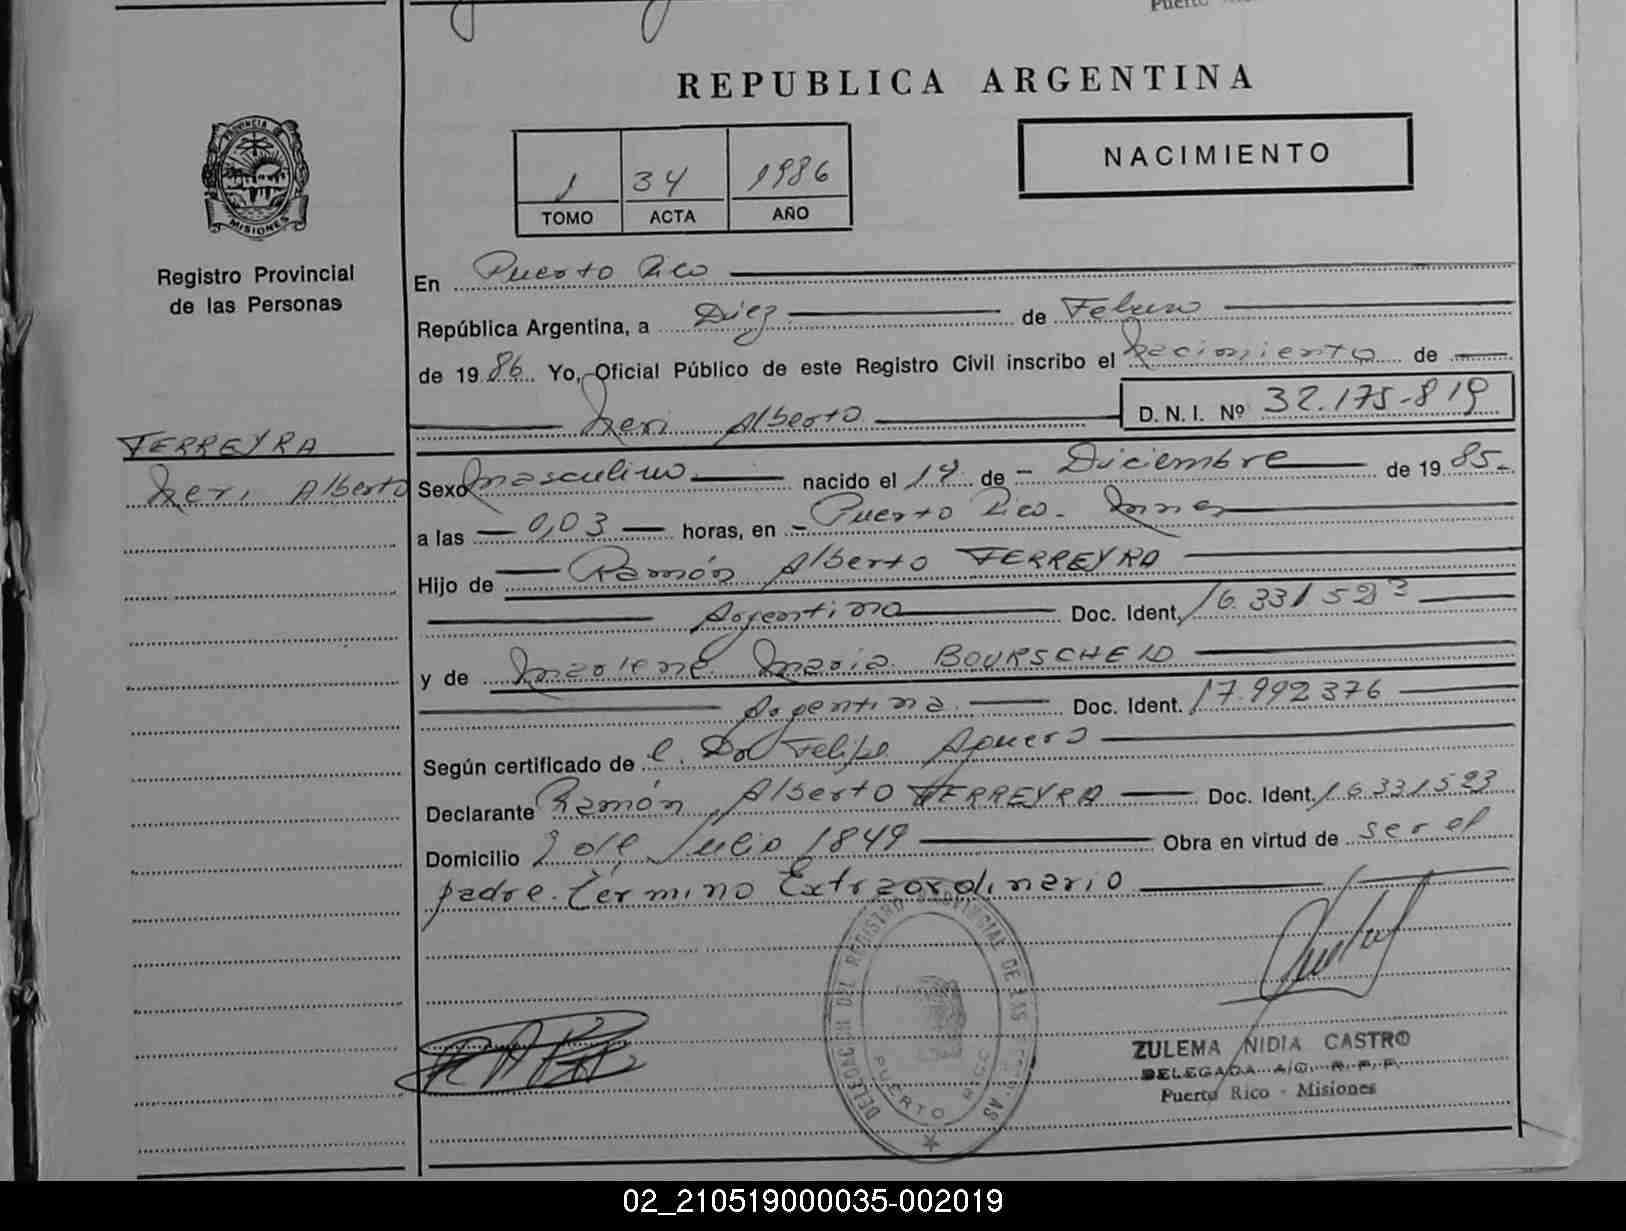 Puerto
REPUBLICA ARGENTINA
PROVINCIA DE
MISIONES
1 34 1986
TOMO ACTA AÑO
NACIMIENTO
Registro Provincial
de las Personas
FERREYRA
Neri Alberto
En Puerto Rico
República Argentina, a Diez de Febrero
de 1986 Yo, Oficial Público de este Registro Civil inscribo el Nacimiento de
Neri Alberto D. N. I. Nº 32.175-819
Sexo Masculino nacido el 14 de Diciembre de 1985-
a las 0,03 horas, en Puerto Rico-
Hijo de Ramón Alberto FERREYRA
Argentina Doc. Ident. 16.331523
y de Marlene Maria BOURSCHEID
Argentina. Doc. Ident. 17.992376
Según certificado de Felipe
Declarante Ramón Alberto FERREYRA Doc. Ident. 16331523
Domicilio 9 de Julio 1849 Obra en virtud de ser el
padre. Término Extraordinario
DELEGACION DEL REGISTRO PROVINCIAL DE LAS PERSONAS
PUERTO RICO
ZULEMA NIDIA CASTRO
DELEGADA A/C. R.P.P.
Puerto Rico - Misiones
02_210519000035-002019